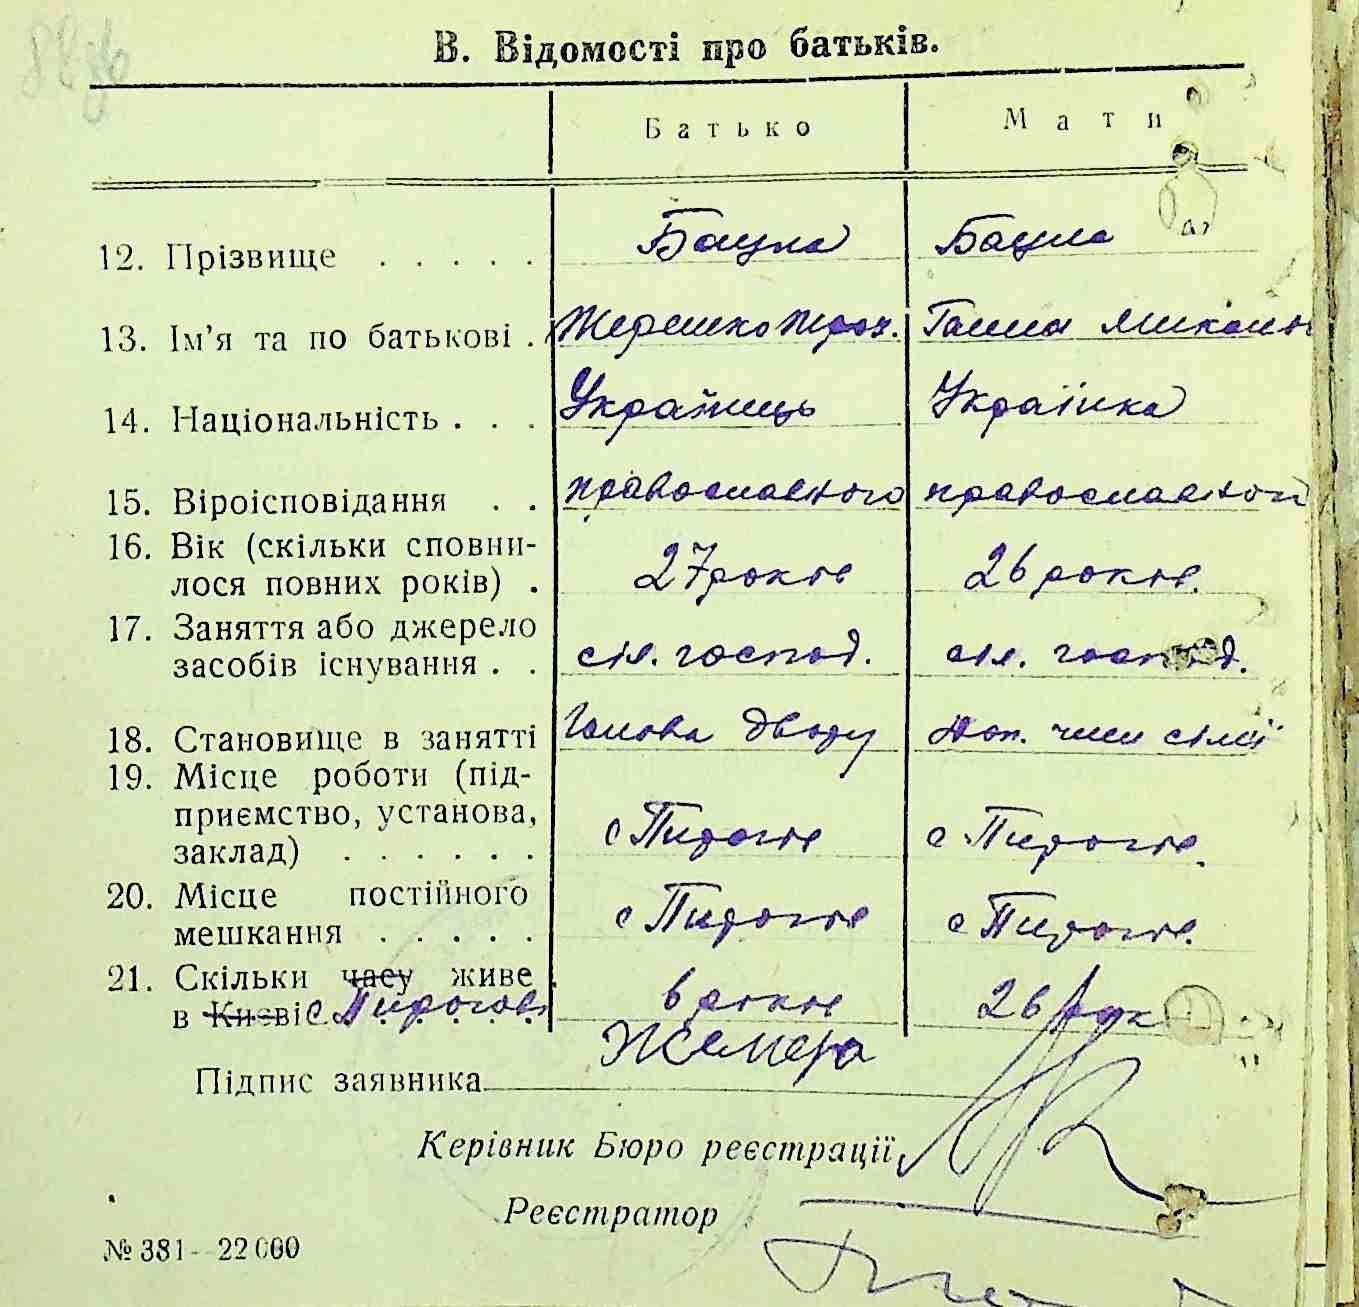 В. Відомості про батьків.
Батько Мати
12. Прізвище . . . . . Бацула Бацула
13. Ім'я та по батькові . Терешко Трох. Ганна Микол
14. Національність . . . Українець Українка
15. Віроісповідання . . православного православної
16. Вік (скільки сповни-
лося повних років) . 27 років 26 років.
17. Заняття або джерело
засобів існування . . сіл. господ. сіл. господ.
18. Становище в занятті Голова двору Доп. член сімї
19. Місце роботи (під-
приємство, установа,
заклад) . . . . . . с Пирогів с Пирогів.
20. Місце постійного
мешкання . . . . . с Пирогів с Пирогів.
21. Скільки часу живе
в Києві с. Пирогові 6 років 26 рок
Підпис заявника
Керівник Бюро реєстрації
Реєстратор
№ 381 - 22000